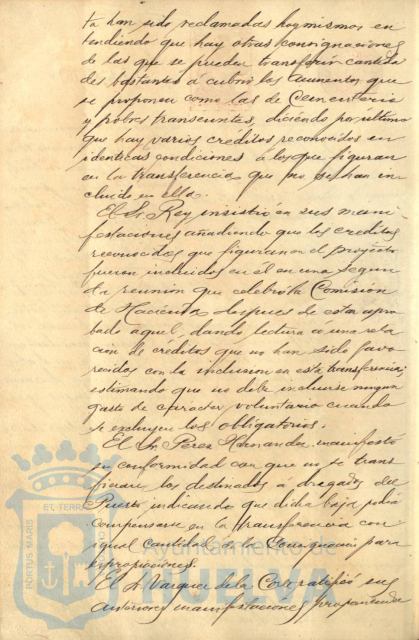 ta han sido reclamadas hoy mismos en
tendiendo que hay otras consignaciones
de las que se pueden transferir cantida
des bastantes a cubrir los aumentos que
se proponen como las de Cementerio
y pobres transeuntes, diciendo por ultimo
que hay varios créditos reconocidos en
identicas condiciones a los que figuran
en la transferencia que no se han in
cluido en ella.
El Sr. Rey insistió en sus mani
festaciones añadiendo que los creditos
reconocidos que figuran en el proyecto
fueron incluidos en él en una segun
da reunion que celebró la Comisión
de Hacienda despues de estar apro
bado aquel, dando lectura a una rela
ción de créditos que no han sido favo
recidos con la inclusion en esta transferencia;
estimando que no debe incluirse ningun
gasto de caracter voluntario cuando
se excluyen los obligatorios.
El Sr. Perez Hernandez manifestó
su conformidad con que no se trans
firiera los destinados a dragados del
Puerto indicando que dicha baja podia
compensarse en la transferencia con
igual cantidad de la Consignación para
expropiaciones.
El Sr. Vazquez de la Corte ratificó sus
anteriores manifestaciones proponiendo
PORTUS MARIS
ET TERRAE
Ayuntamiento de
HUELVA